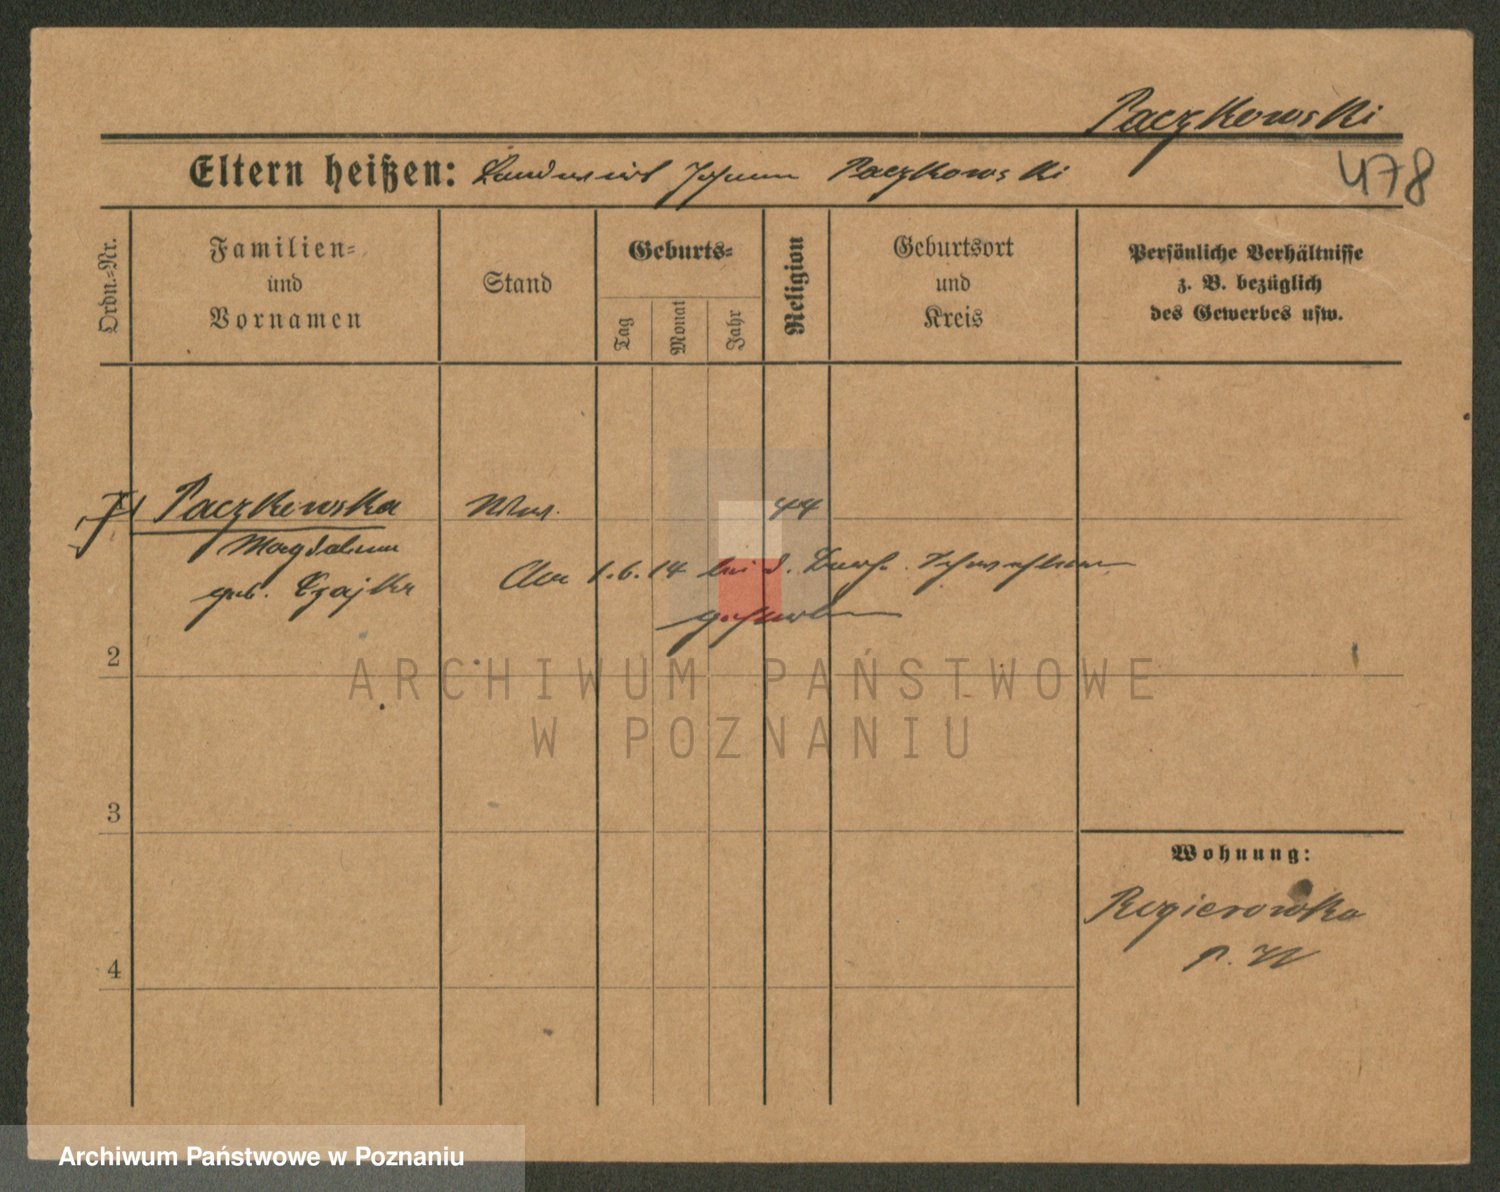 Paczkowski
478
Eltern heißen: Landwirt Johann Paczkowski
Ordn.-Nr.
Familien- und Vornamen
Stand
Geburts-
Tag
Monat
Jahr
Religion
Geburtsort und Kreis
Persönliche Verhältnisse z. B. bezüglich des Gewerbes usw.
Paczkowska Ww. 44
Magdalena
geb. Czajka
Am 1.6.14 bei d.
gestorben
2
3
4
Wohnung:
ARCHIWUM PAŃSTWOWE
W POZNANIU
Archiwum Państwowe w Poznaniu